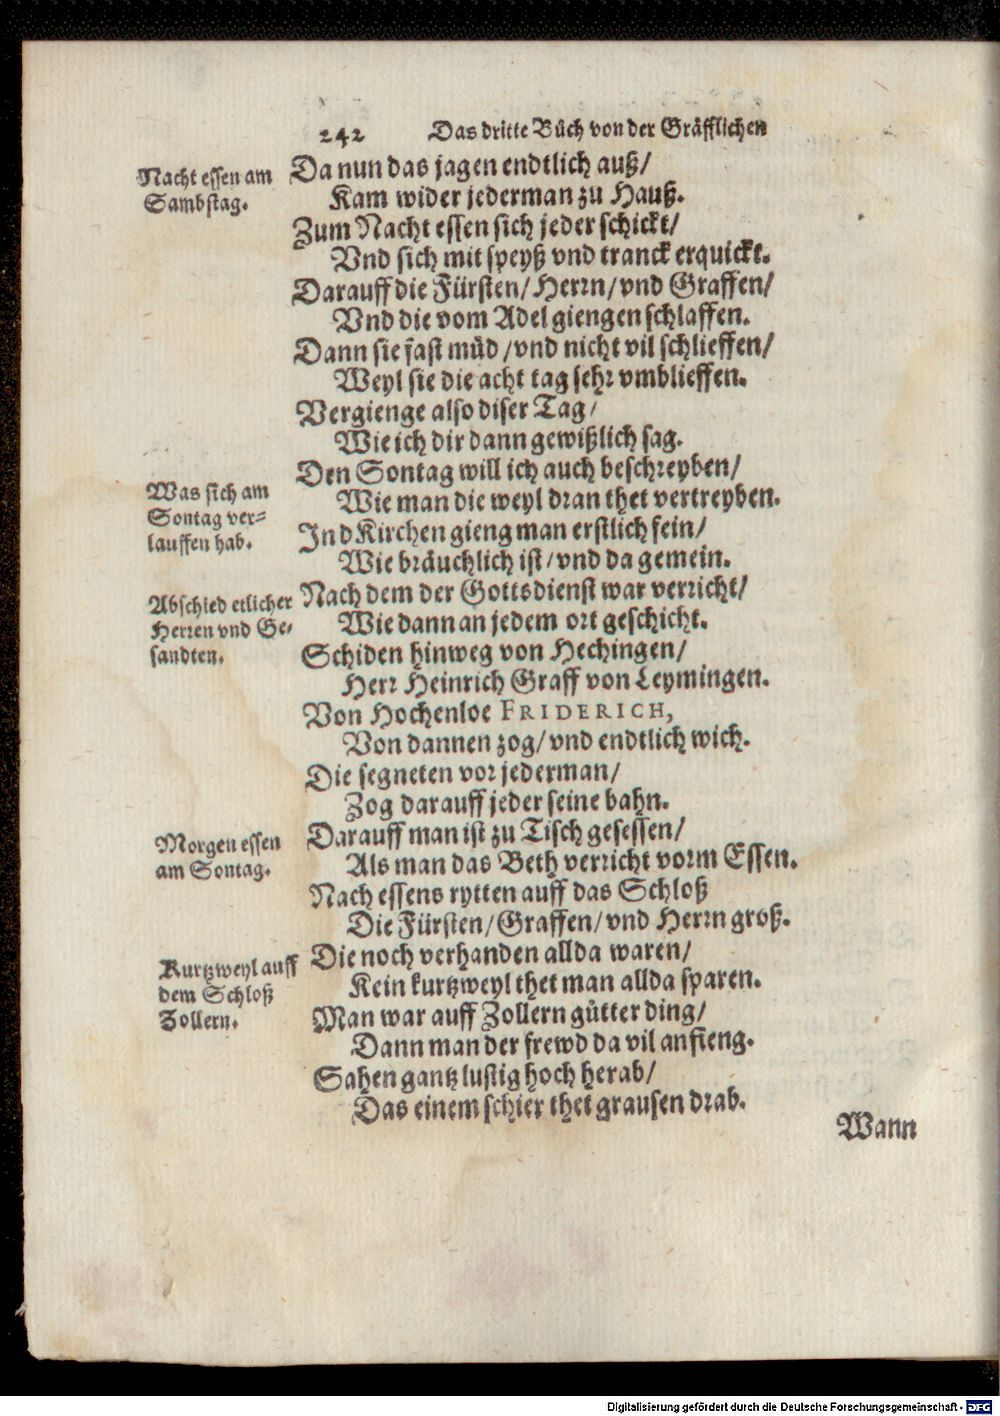 242 Das dritte Bůch von der Gräfflichen
Nacht essen am
Sambstag.
Da nun das jagen endtlich auß/
Kam wider jederman zu Hauß.
Zum Nacht essen sich jeder schickt/
Vnd sich mit speyß vnd tranck erquickt.
Darauff die Fürsten/ Herrn/ vnd Graffen/
Vnd die vom Adel giengen schlaffen.
Dann sie fast müd/ vnd nicht vil schlieffen/
Weyl sie die acht tag sehr vmblieffen.
Vergienge also diser Tag/
Wie ich dir dann gewißlich sag.
Was sich am
Sontag ver-
lauffen hab.
Den Sontag will ich auch beschreyben/
Wie man die weyl dran thet vertreyben.
In d Kirchen gieng man erstlich fein/
Wie bräuchlich ist/ vnd da gemein.
Abschied etlicher
Herren vnd Ge-
sandten.
Nach dem der Gottsdienst war verricht/
Wie dann an jedem ort geschicht.
Schiden hinweg von Hechingen/
Herr Heinrich Graff von Leymingen.
Von Hochenloe FRIDERICH,
Von dannen zog/ vnd endtlich wich.
Die segneten vor jederman/
Zog darauff jeder seine bahn.
Morgen essen
am Sontag.
Darauff man ist zu Tisch gesessen/
Als man das Beth verricht vorm Essen.
Nach essens rytten auff das Schloß
Die Fürsten/ Graffen/ vnd Herrn groß.
Kurtzweyl auff
dem Schloß
Zollern.
Die noch verhanden allda waren/
Kein kurtzweyl thet man allda sparen.
Man war auff Zollern gůtter ding/
Dann man der frewd da vil anfieng.
Sahen gantz lustig hoch herab/
Das einem schier thet grausen drab.
Wann
Digitalisierung gefördert durch die Deutsche Forschungsgemeinschaft - DFG